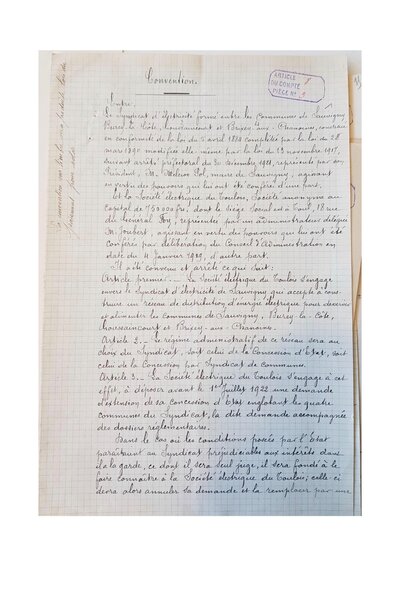 Convention.
ARTICLE
DU COMPTE
PIÈCE N°
Entre,
Le Syndicat d'électricité formé entre les communes de Sauvigny,
Burey la Côte, Moussaincourt et Brixey-aux-Chanoines, constitué
en conformité de la loi du 5 avril 1884 complétée par la loi du 22
mars 1890 modifiée elle-même par la loi du 13 novembre 1917,
suivant arrêté préfectoral du 30 décembre 1921, représenté par son
Président, M. Pol, maire de Sauvigny, agissant
en vertu des pouvoirs qui lui ont été conférés d'une part,
Et la Société électrique du Toulois, Société anonyme au
capital de 75000 frs, dont le siège social est à Toul, 18 rue
du Général Foy, représentée par un administrateur délégué
M. Joubert, agissant en vertu des pouvoirs qui lui ont été
conférés par délibération du Conseil d'Administration en
date du 4 janvier 1919, d'autre part.
Il a été convenu et arrêté ce qui suit:
Article premier. — La Société électrique du Toulois s'engage
envers le Syndicat d'électricité de Sauvigny qui accepte à cons-
truire un réseau de distribution d'énergie électrique pour desservir
et alimenter les communes de Sauvigny, Burey-la-Côte,
Moussaincourt et Brixey-aux-Chanoines.
Article 2. — Le régime administratif de ce réseau sera au
choix du Syndicat, soit celui de la Concession d'Etat, soit
celui de la Concession par Syndicat de communes.
Article 3. — La Société électrique du Toulois s'engage à cet
effet, à déposer avant le 1er juillet 1922 une demande
d'extension de sa concession d'Etat englobant les quatre
communes du Syndicat, la dite demande accompagnée
des dossiers réglementaires.
Dans le cas où les conditions posées par l'Etat
paraîtraient au Syndicat préjudiciables aux intérêts dont
il a la garde, ce dont il sera seul juge, il sera fondé à le
faire connaître à la Société électrique du Toulois; celle-ci
devra alors annuler sa demande et la remplacer par une